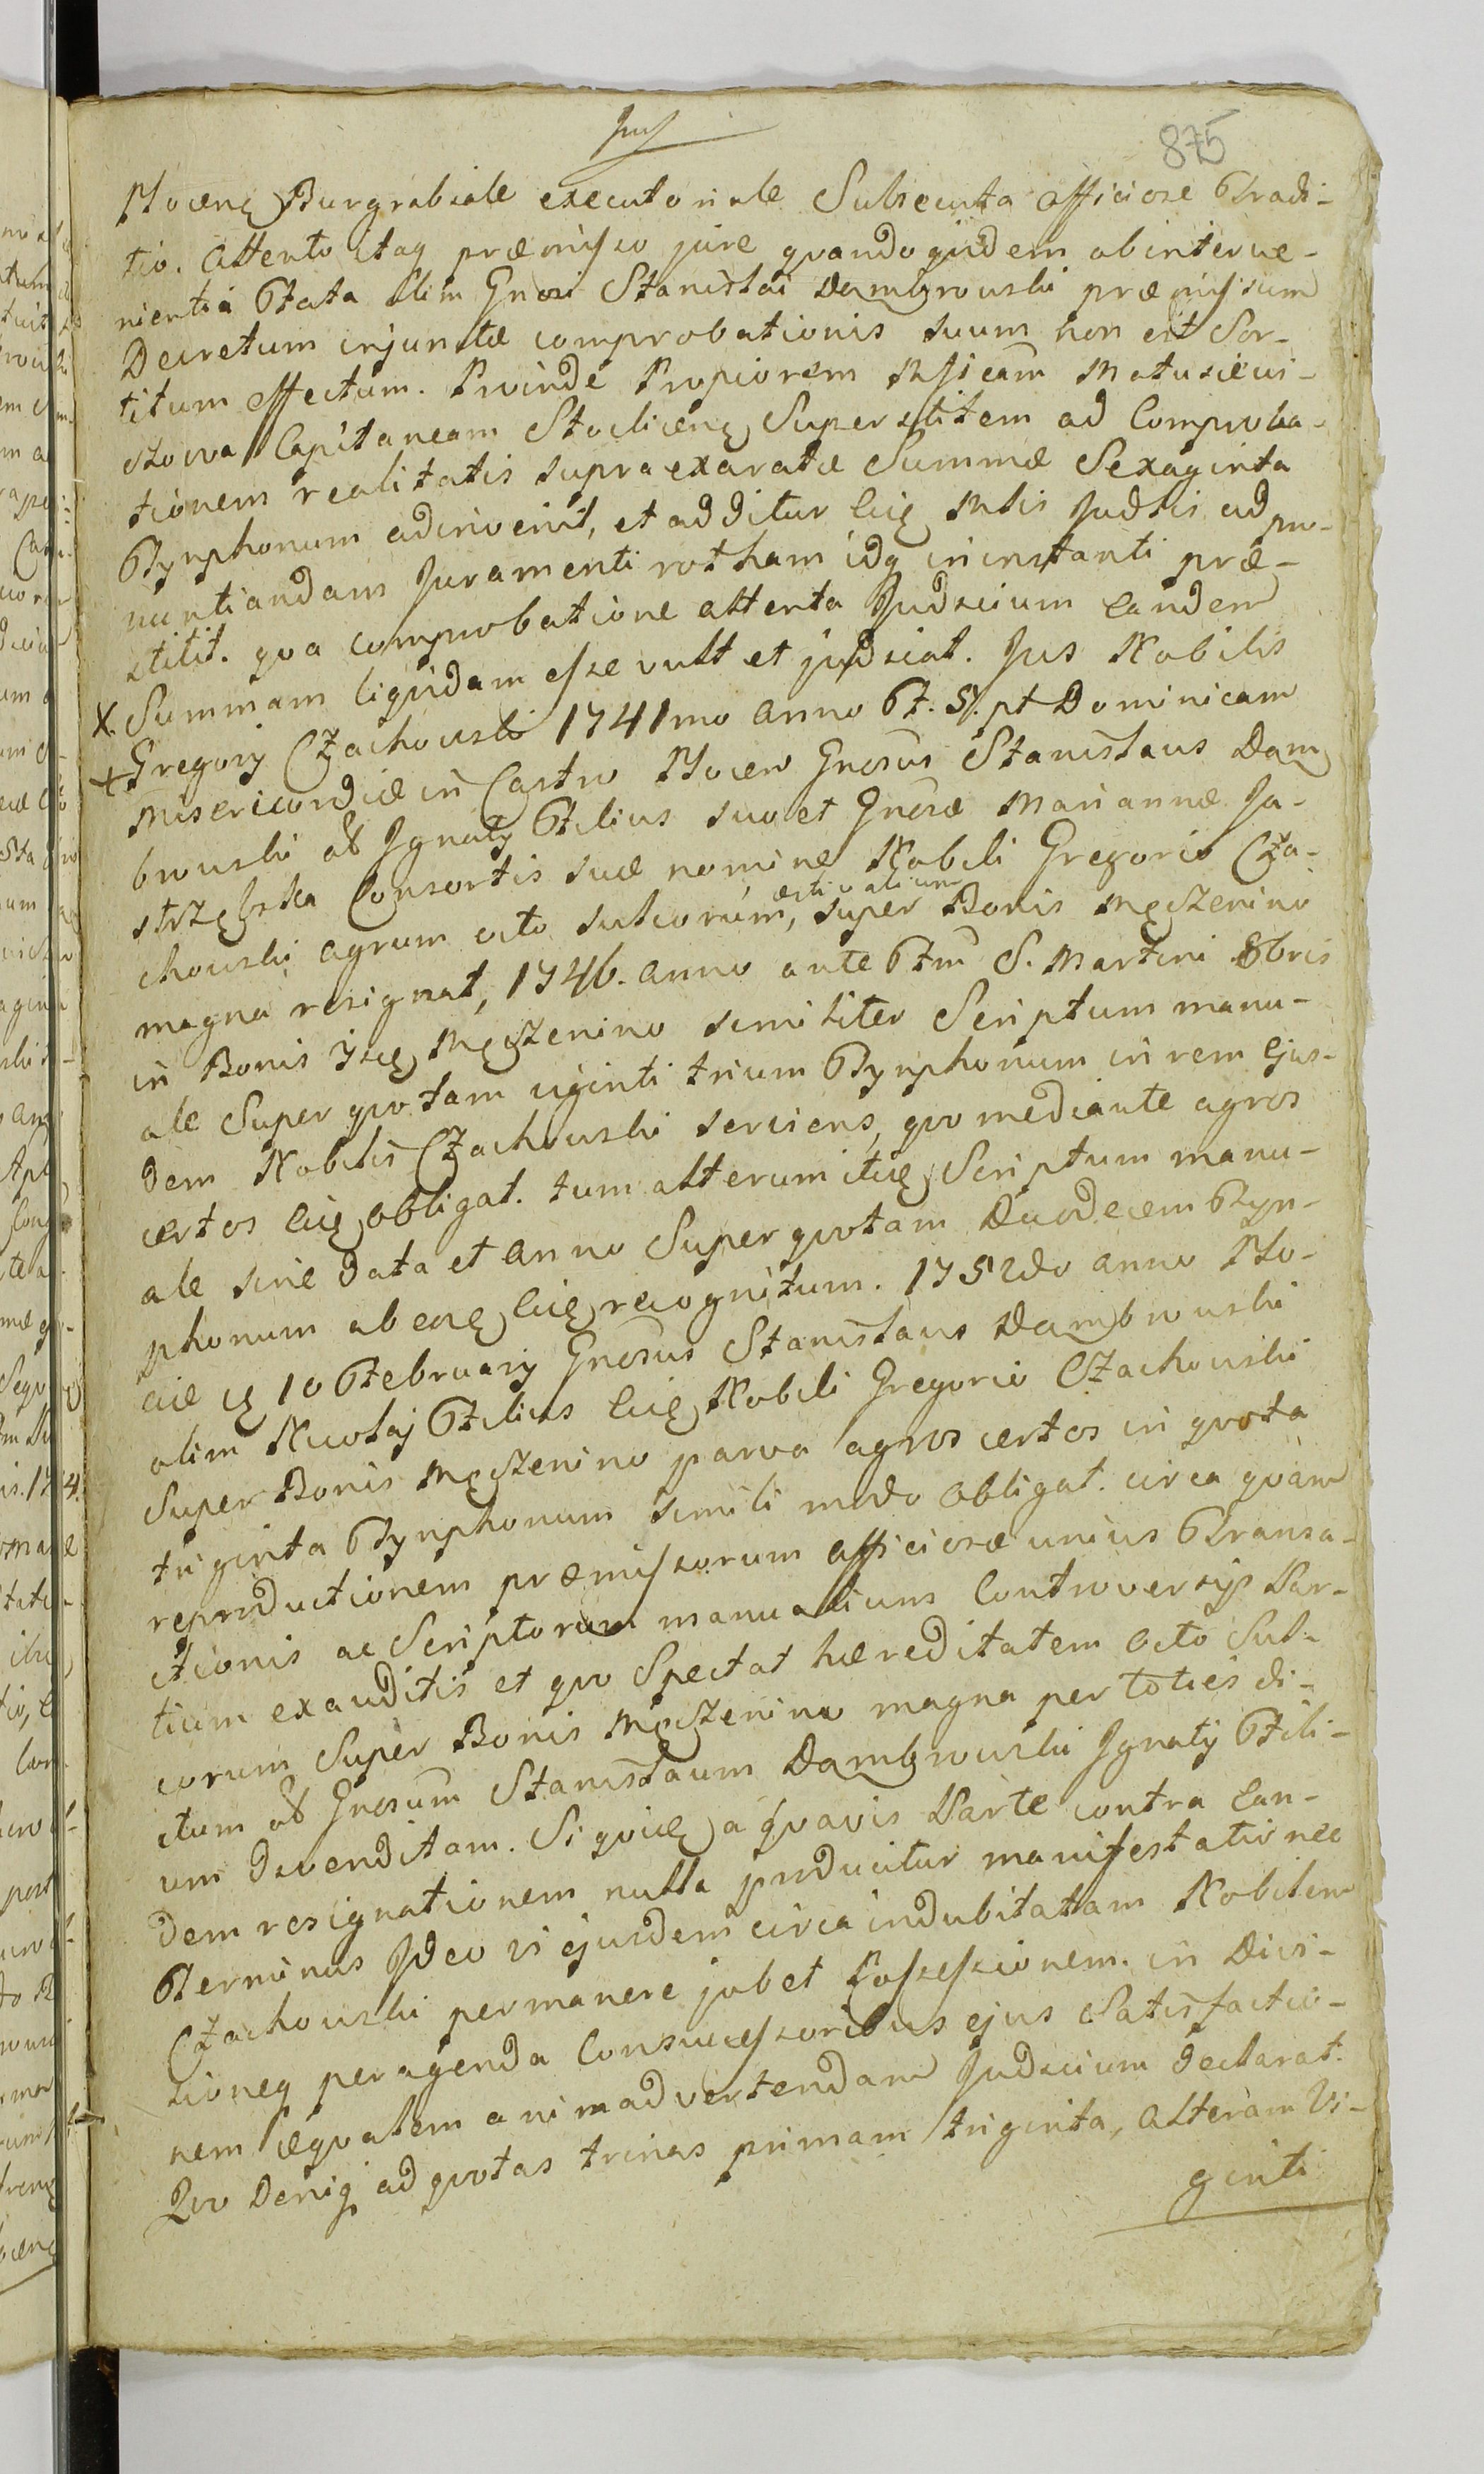 875
Plocenę Burgrabiale executoriale Subsecuta officiose Tradi-
tio. Attento itaq præmisso jure quandoquidem ob interve-
nientia Fata olim Gnosi Stanislai Dambrowski præmissum
Decretum injunctæ comprobationis suum non est Sor-
titum effectum. Proinde Propiorem Mficam Matusiewi-
czowa Capitaneam Stoclicenę Superstitem ad Comproba-
tionem realitatis supra exaratæ Summæ Sexaginta
Tynphonum adinvenit, et additur Eiię Mtis Judtis ad pro-
nuntiandam Juramenti rotham idq in instanti præ-
stitit. qva comprobatione attenta Judicium eandem
X. Summam liquidam esse vult et judicat. Jus Nobilis
+ Gregorij Czachowski 1741mo Anno F. 5. pt Dominicam
Misericordiæ in Castro Plocen Gnosus Stanislaus Dam
browski olim Ignatij Filius suo et Gnosæ Mariannæ Ja-
strzębska Consortis suæ nomine Nobili Gregorio Cza-
chowski agrum octo sulcorum, æstivalium super Bonis Męczenino
magna resignat, 1746. Anno ante Ftm S. Martini 8bris
in Bonis Męczenino similiter Scriptum manu-
ale Super qvotam viginti trium Tynphonum in rem Ejus-
dem Nobilis Czachowski serviens, qvo mediante agros
certos Eiię obligat. tum alterum itię Scriptum manu-
ale sine data et Anno Super qvotam Duodecem Tyn-
phonum ab eoię Eiię recognitum. 1752do Anno Plo-
ciæ 10 February Gnosus Stanislaus Dambrowski
olim Nicolaj Filius Eiię Nobili Gregorio Czachowski
Super Bonis Męczenino parva agros certos in qvota
triginta Tynphonum simili modo obligat. circa qvam
reproductionem præmissorum officiosæ unius Transa-
ctionis ac Scriptorum manualium Controversijs Par-
tium exauditis et qvo Spectat hæreditatem octo Sul-
corum Super Bonis Męczenino magna per toties di-
ctum olim Gnosum Stanislaum Dambrowski Ignatij Fili-
um divenditam. Si qvię a qvavis Parte contra Ean-
dem resignationem nulla producitur manifestatio nec
Terminus Ideo vi ejusdem circa indubitatam Nobilem
Czachowski permanere jubet Possessionem. in Divi-
sioneq peragenda Consuccessoribus ejus Satisfactio-
nem æqvalem animadvertendam Judicium declarat.
Qvo Deniq ad qvotas trinas primam triginta, Alteram Vi-
ginti